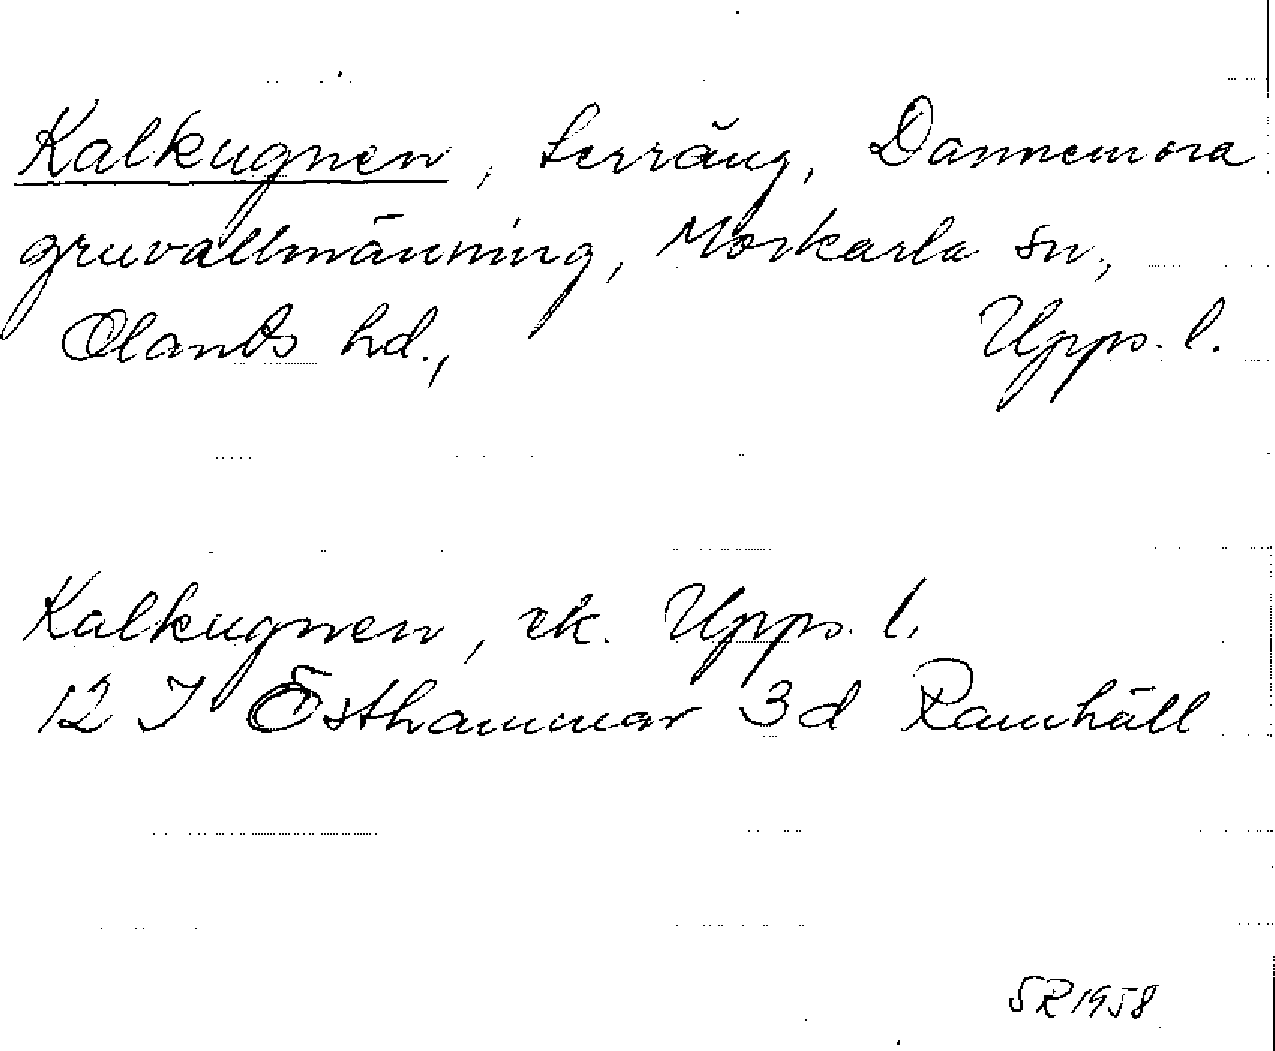 Kalkugnen, terräng, Dannemora
gruvallmänning, Morkarla sn,
Olands hd., Upps. l.
Kalkugnen, ek. Upps. l.
12 I Östhammar 3d Ramhäll
SR 1958